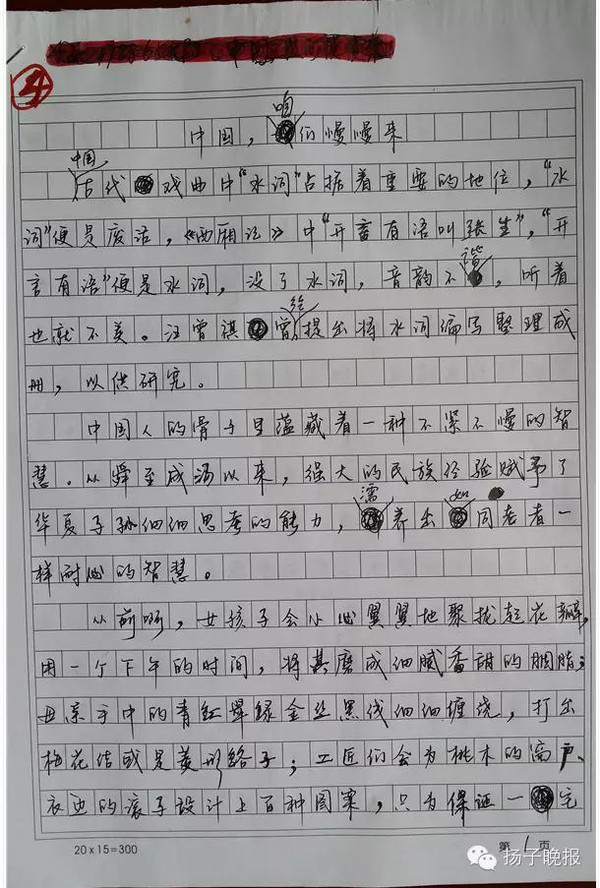 4
中国，咱们慢慢来
中国古代戏曲中“水词”占据着重要的地位，“水
词”便是废话，《西厢记》中“开言有语叫张生”，“开
言有语”便是水词，没了水词，音韵不谐，听着
也就不美。汪曾祺曾经提出将水词编写整理成
册，以供研究。
中国人的骨子里蕴藏着一种不紧不慢的智
慧。从舜至成汤以来，强大的民族经验赋予了
华夏子孙细细思考的能力，濡养出如同老者一
样耐心的智慧。
从前啊，女孩子会小心翼翼地聚拢起花瓣，
用一个下午的时间，将其磨成细腻香甜的胭脂；
母亲手中的青红翠绿金丝黑线细细缠绕，打出
梅花结或是菱形络子；工匠们会为桃木的窗户、
衣边的滚子设计上百种图案，只为保证一宅
20×15=300
第1页
扬子晚报